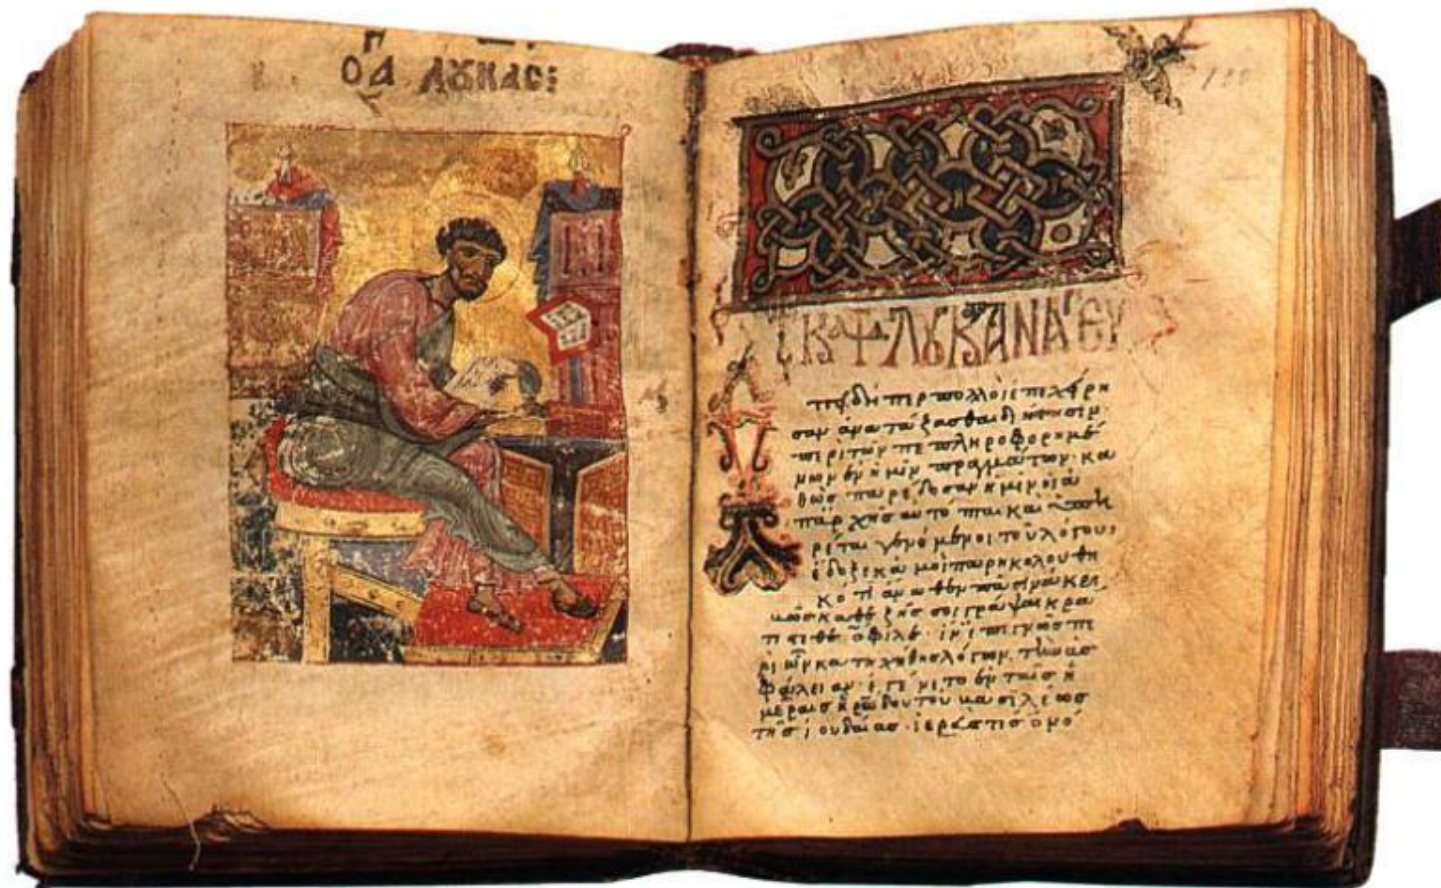 ΛΟΥΚΑС
ΛΟΥΚΑΝ
ἐπειδήπερ πολλοὶ ἐπεχείρη
σαν ἀνατάξασθαι διήγησιν
περὶ τῶν πεπληροφορημέ
νων ἐν ἡμῖν πραγμάτων· κα
θὼς παρέδοσαν ἡμῖν οἱ ἀ
π' ἀρχῆς αὐτόπται καὶ ὑπη
ρέται γενόμενοι τοῦ λόγου,
ἔδοξε κἀμοὶ παρηκολουθη
κότι ἄνωθεν πᾶσιν ἀκρι
βῶς καθεξῆς σοι γράψαι κρά
τιστε θεόφιλε· ἵνα ἐπιγνῷς πε
ρὶ ὧν κατηχήθης λόγων, τὴν ἀσ
φάλειαν· ἐγένετο ἐν ταῖς ἡ
μέραις ἡρώδου τοῦ βασιλέως
τῆς ἰουδαίας· ἱερεύς τις ὀνό